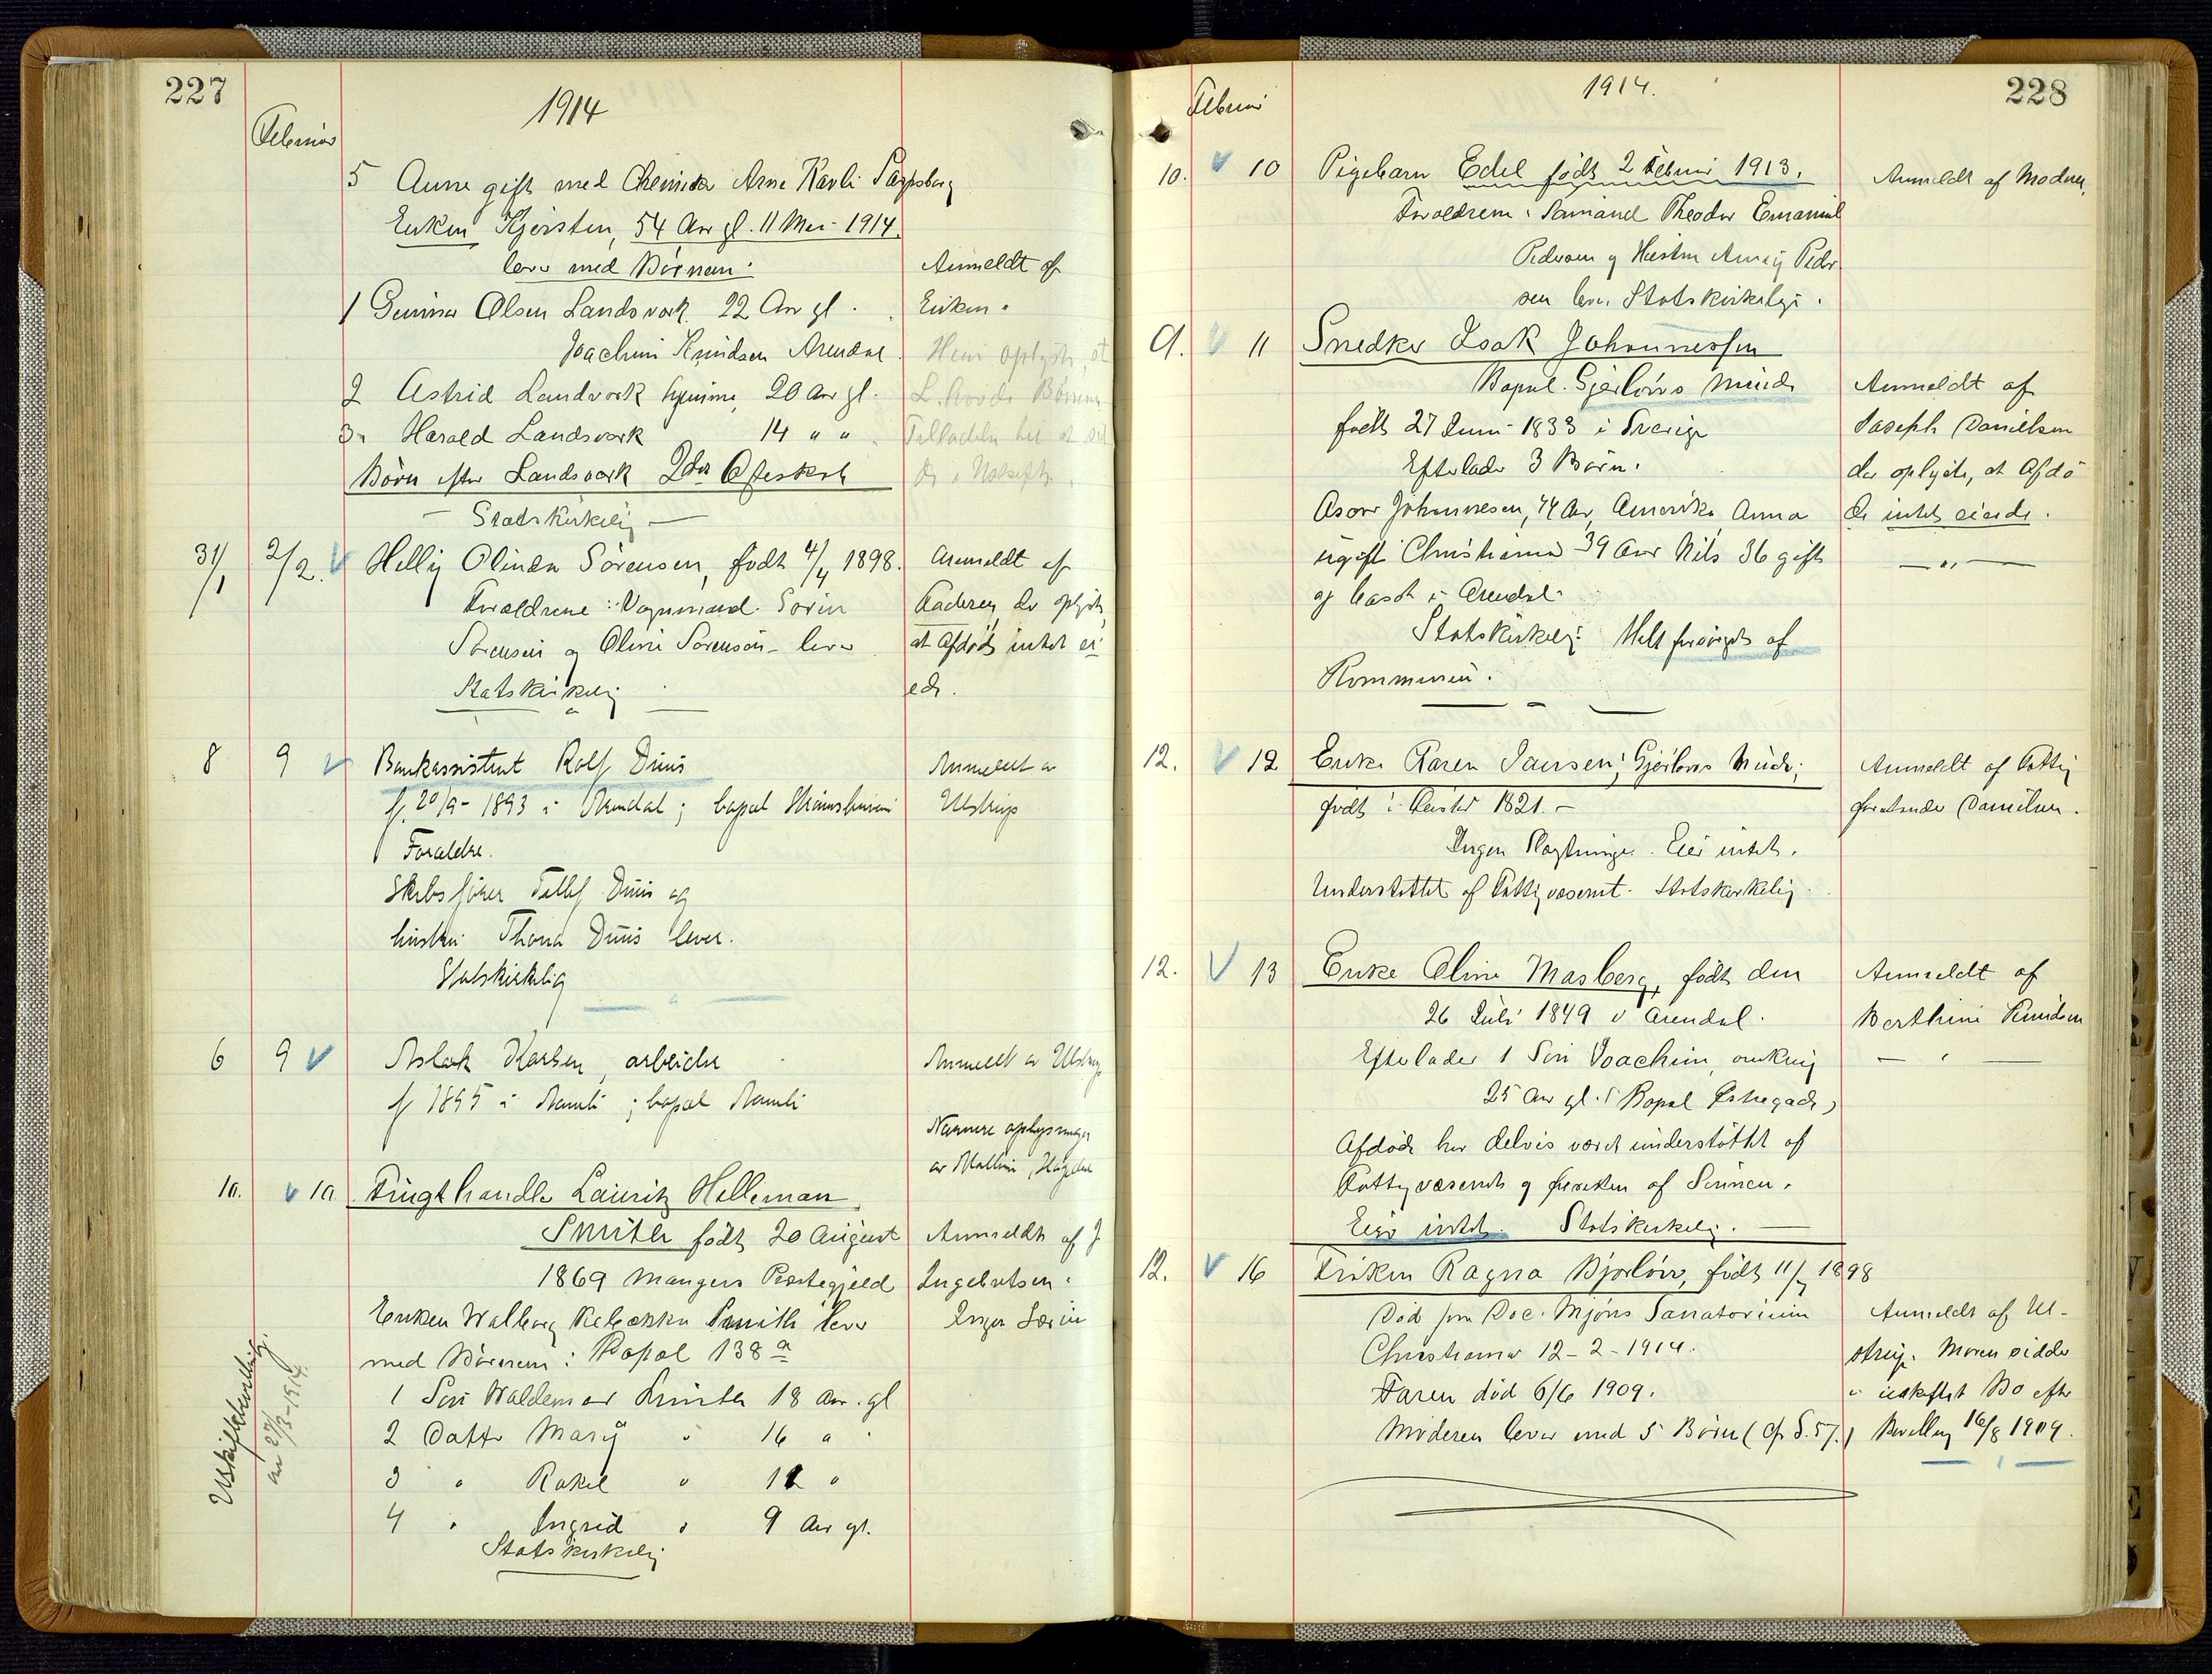 227
Februar
1914
5 Anne gift med Chemiker Arne Kavli Sarpsborg
Enken Kjersten, 54 Aar gl. 11 Mai - 1914.
lever med Børnene:
1 Gunnar Olsen Landsverk 22 Aar gl.
Joachim Knudsen Arendal.
2 Astrid Landsverk hjemme, 20 Aar gl.
3 Harald Landsverk 14 " "
Børn efter Landsverk 2det Ægteskab
Statskirkelig
Anmeldt af
Enken.
Hun oplyste, at
L. havde Børnenes
Tilladelse til at sid
de i Uskiftet.
31/1 2/2. Helly Olinda Sørensen, født 4/4 1898.
Forældrene: Vognmand Søren
Sørensen og Oline Sørensen - lever
Statskirkelig
Anmeldt af
Faderen, der oplyste,
at Afdøde intet ei
ede.
8 9 Bankassistent Rolf Duus
f. 20/9 - 1893 i Arendal; bopæl Strømsbuen
Forældre.
Skibsfører Tellef Duus og
hustru Thora Duus lever.
Statskirkelig
Anmeldt av
Ulstrup
6 9 Aslak Karlsen, arbeider
f 1895 i Aamli; bopæl Aamli
Anmeldt av Ulstrup
Nærmere oplysninger
av
10. 10. Frugthandler Lauritz Helleman
Smith født 20 August
1869 Mangers Præstegjeld
Enken Walborg Rebekka Smith lever
med Børnene: Bopæl 138 a
1 Søn Waldemar Smith 18 Aar. gl
2 Datter Mary " 16 "
3 " Rakel " 12 "
4 " Ingrid " 9 Aar gl.
Statskirkelig
Anmeldt af J
Ingebretsen.
Ingen Særeie
Uskiftebevilling
av 27/3-1914.
228
Februar
1914.
10. 10 Pigebarn Edel født 2 Februar 1913.
Forældrene: Sømand Theodor Emanuel
Pedersen og Hustru Anny Peder
sen lever. Statskirkelige.
Anmeldt af Moderen.
9. 11 Snedker Isak Johannessen
Bopæl. Gjerløws Minde
født 27 Juni - 1833 i Sverige
Efterlader 3 Børn.
Oscar Johannesen, 44 Aar, Amerika, Anna
ugift Christiania 39 Aar Nils 36 gift
og bosat i Arendal.
Statskirkelig. Helt forsørget af
Kommunen.
Anmeldt af
Joseph Danielsen
der oplyste, at Afdø
de intet eiede.
12. 12 Enke Karen Jansen, Gjerløws Minde;
født i Høster 1821. -
Ingen Slægtninge. Eier intet.
Understøttet af Fattigvæsenet. Statskirkelig.
Anmeldt af Fattig
forstander Danielsen.
12. 13 Enke Oline Masberg, født den
26 Juli 1849 i Arendal.
Efterlader 1 Søn Joachim, omkring
25 Aar gl. (Bopæl Østregade)
Afdøde har delvis været understøttet af
Fattigvæsenet og forresten af Sønnen.
Eier intet. Statskirkelig.
Anmeldt af
Berthine Knudsen
12. 16 Frøken Ragna Bjorløw, født 11/7 1898
Død paa Doc. Mjøns Sanatorium
Christiania 12 - 2 - 1914.
Faren død 6/6 1909.
Moderen lever med 5 Børn (cfr S. 57.)
Anmeldt af Ul-
strup. Moren sidder
i uskiftet Bo efter
Bevilling 16/8 1909.